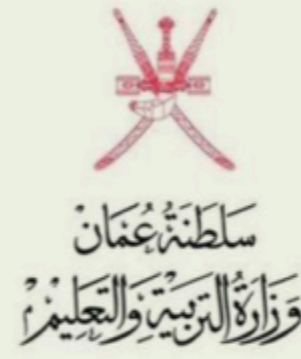 سَلطَنَةُ عُمَان
وَزَارَةُ التَّربيَةِ وَالتَّعليم